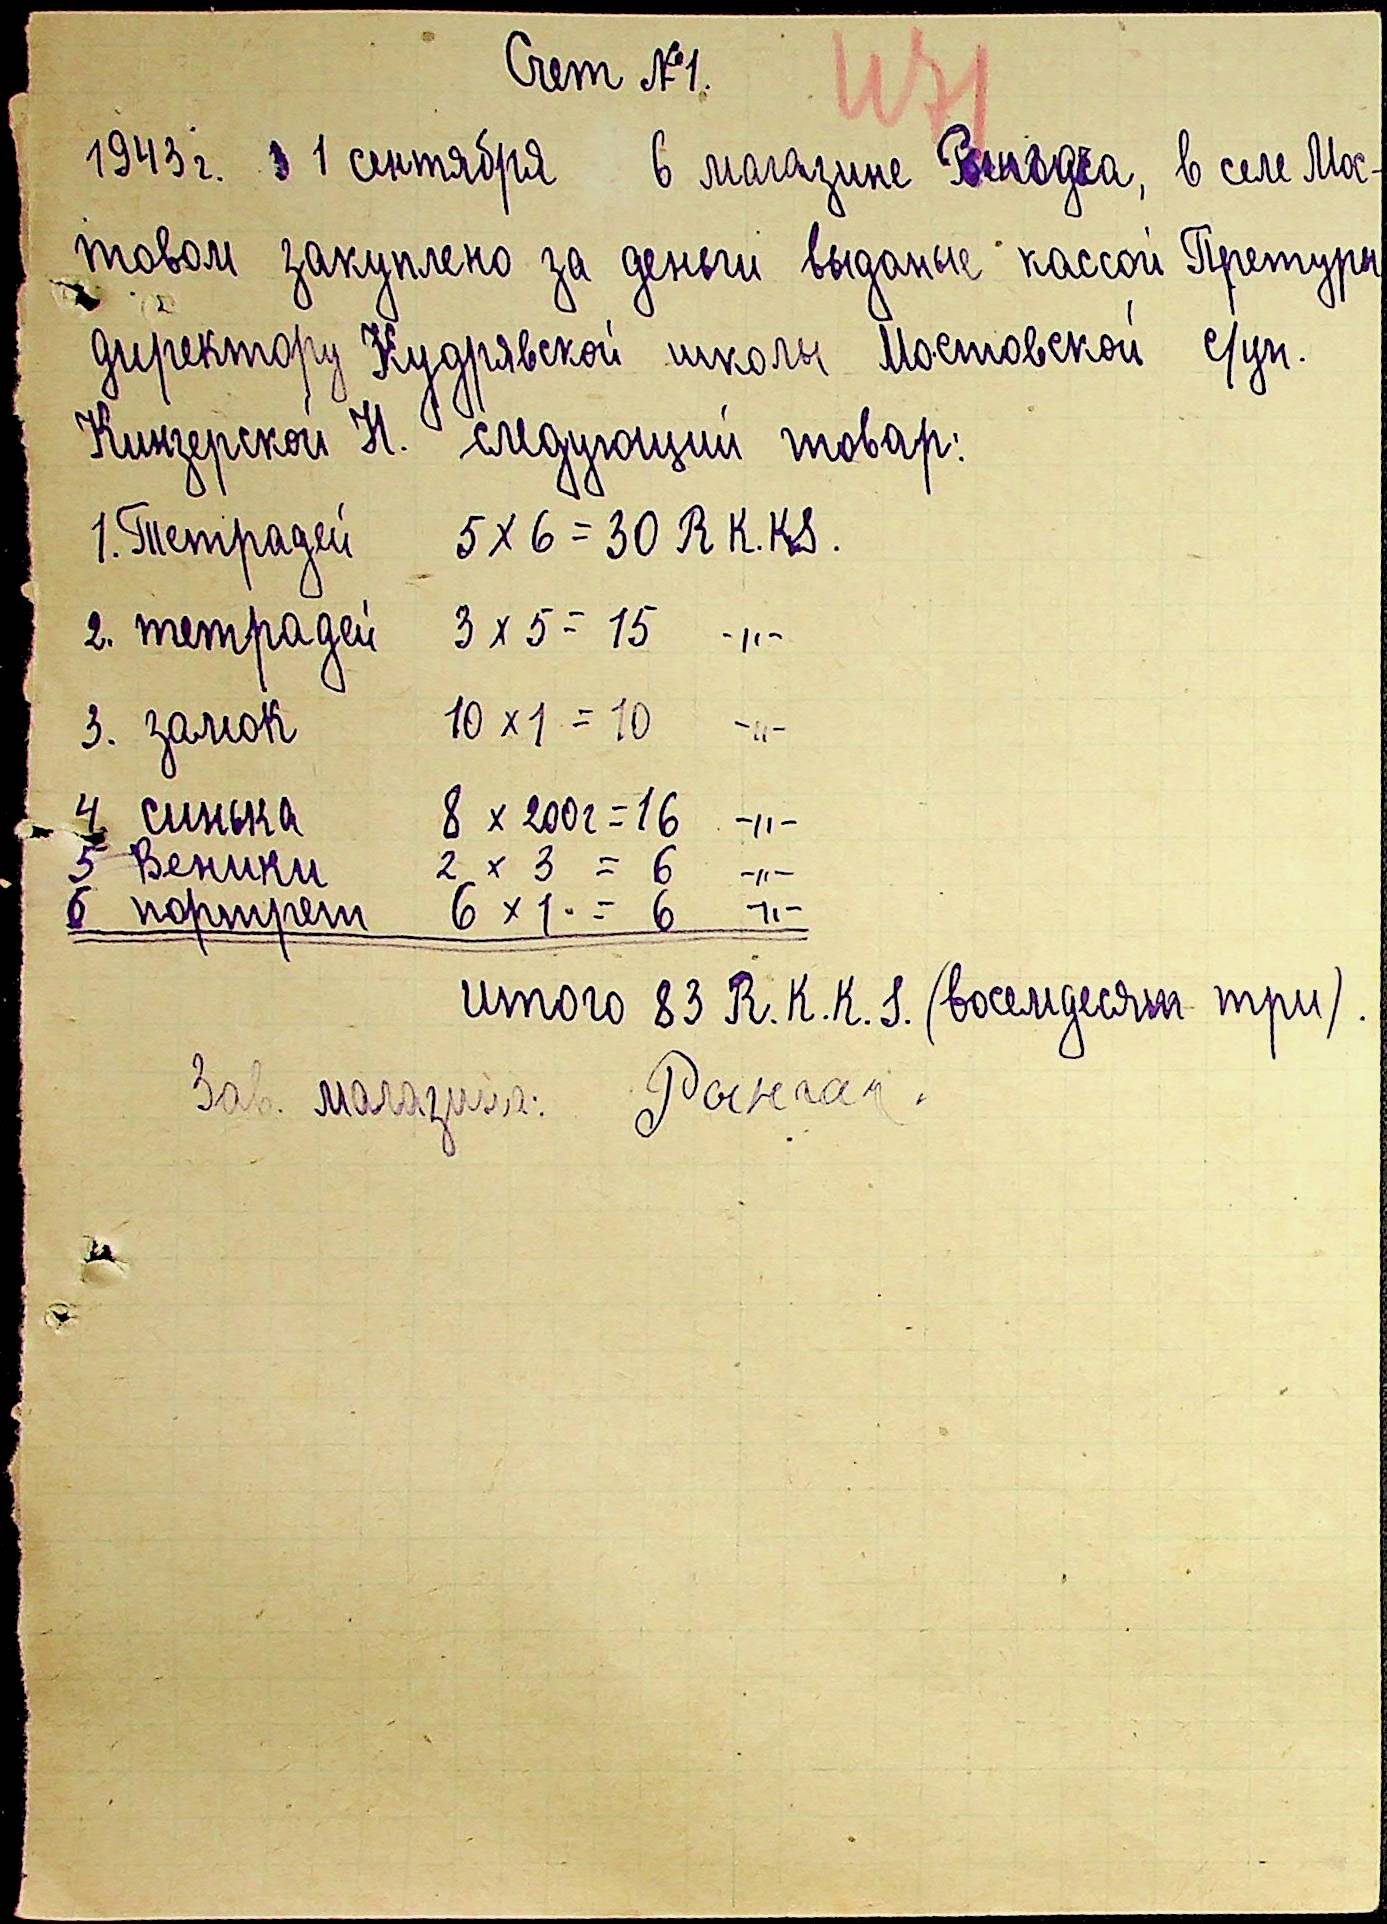 Счет №1.
1943г. 1 сентября в магазине в селе Мос-
товом закуплено за деньги выданые кассой Претуры
директору Кудрявской школы Мостовской с/уп.
Кинзерской Н. следующий товар:
1. Тетрадей 5 х 6 = 30 R K.K.S.
2. тетрадей 3 х 5 = 15 -"-
3. замок 10 х 1 = 10 -"-
4 синька 8 х 200г = 16 -"-
5 Веники 2 х 3 = 6 -"-
6 портрет 6 х 1 = 6 -"-
итого 83 R.K.K.S. (восемдесят три).
Зав. магазина: